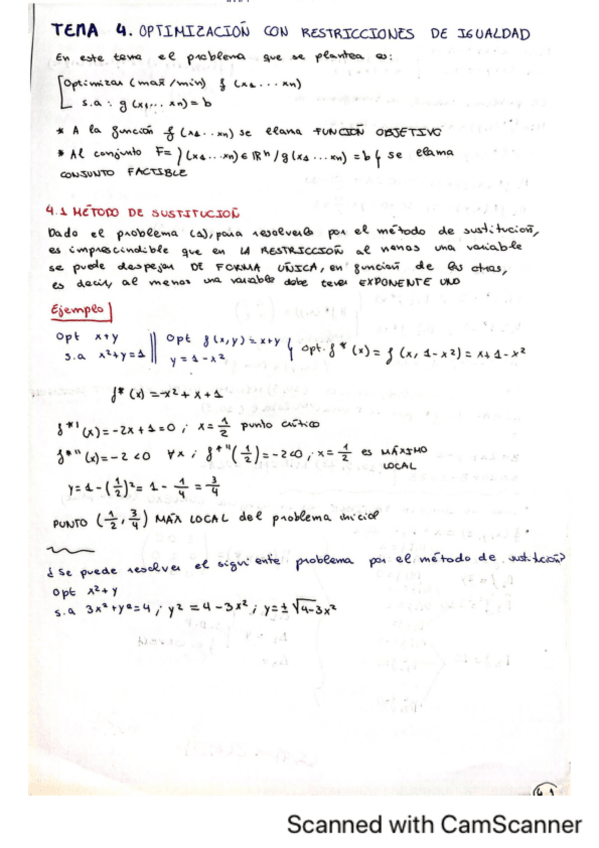 TEMA 4. OPTIMIZACIÓN CON RESTRICCIONES DE IGUALDAD
En este tema el problema que se plantea es:
Optimizar (max/min) f (x1...xn)
s.a : g (x1,... xn) = b
* A la función f (x1...xn) se llama FUNCIÓN OBJETIVO
* Al conjunto F= {(x1...xn) ∈ ℝⁿ / g(x1...xn) = b} se llama
CONJUNTO FACTIBLE
4.1 MÉTODO DE SUSTITUCIÓN
Dado el problema (1), para resolverlo por el método de sustitución,
es imprescindible que en LA RESTRICCIÓN al menos una variable
se puede despejar DE FORMA ÚNICA, en función de las otras,
es decir, al menos una variable debe tener EXPONENTE UNO
Ejemplo
Opt x+y || Opt f(x,y) = x+y } Opt. f*(x) = f (x, 1-x²) = x+1-x²
s.a x²+y=1 || y = 1-x²
f*(x) = -x²+x+1
f*'(x) = -2x+1=0 ; x= 1/2 punto crítico
f*''(x) = -2 <0 ∀x ; f*''(1/2) = -2<0 ; x= 1/2 es MÁXIMO
LOCAL
y= 1-(1/2)² = 1 - 1/4 = 3/4
PUNTO (1/2, 3/4) MÁX LOCAL del problema inicial
¿Se puede resolver el siguiente problema por el método de sustitución?
Opt x²+y
s.a 3x²+y²=4 ; y² = 4-3x² ; y= ± √4-3x²
4.1
Scanned with CamScanner